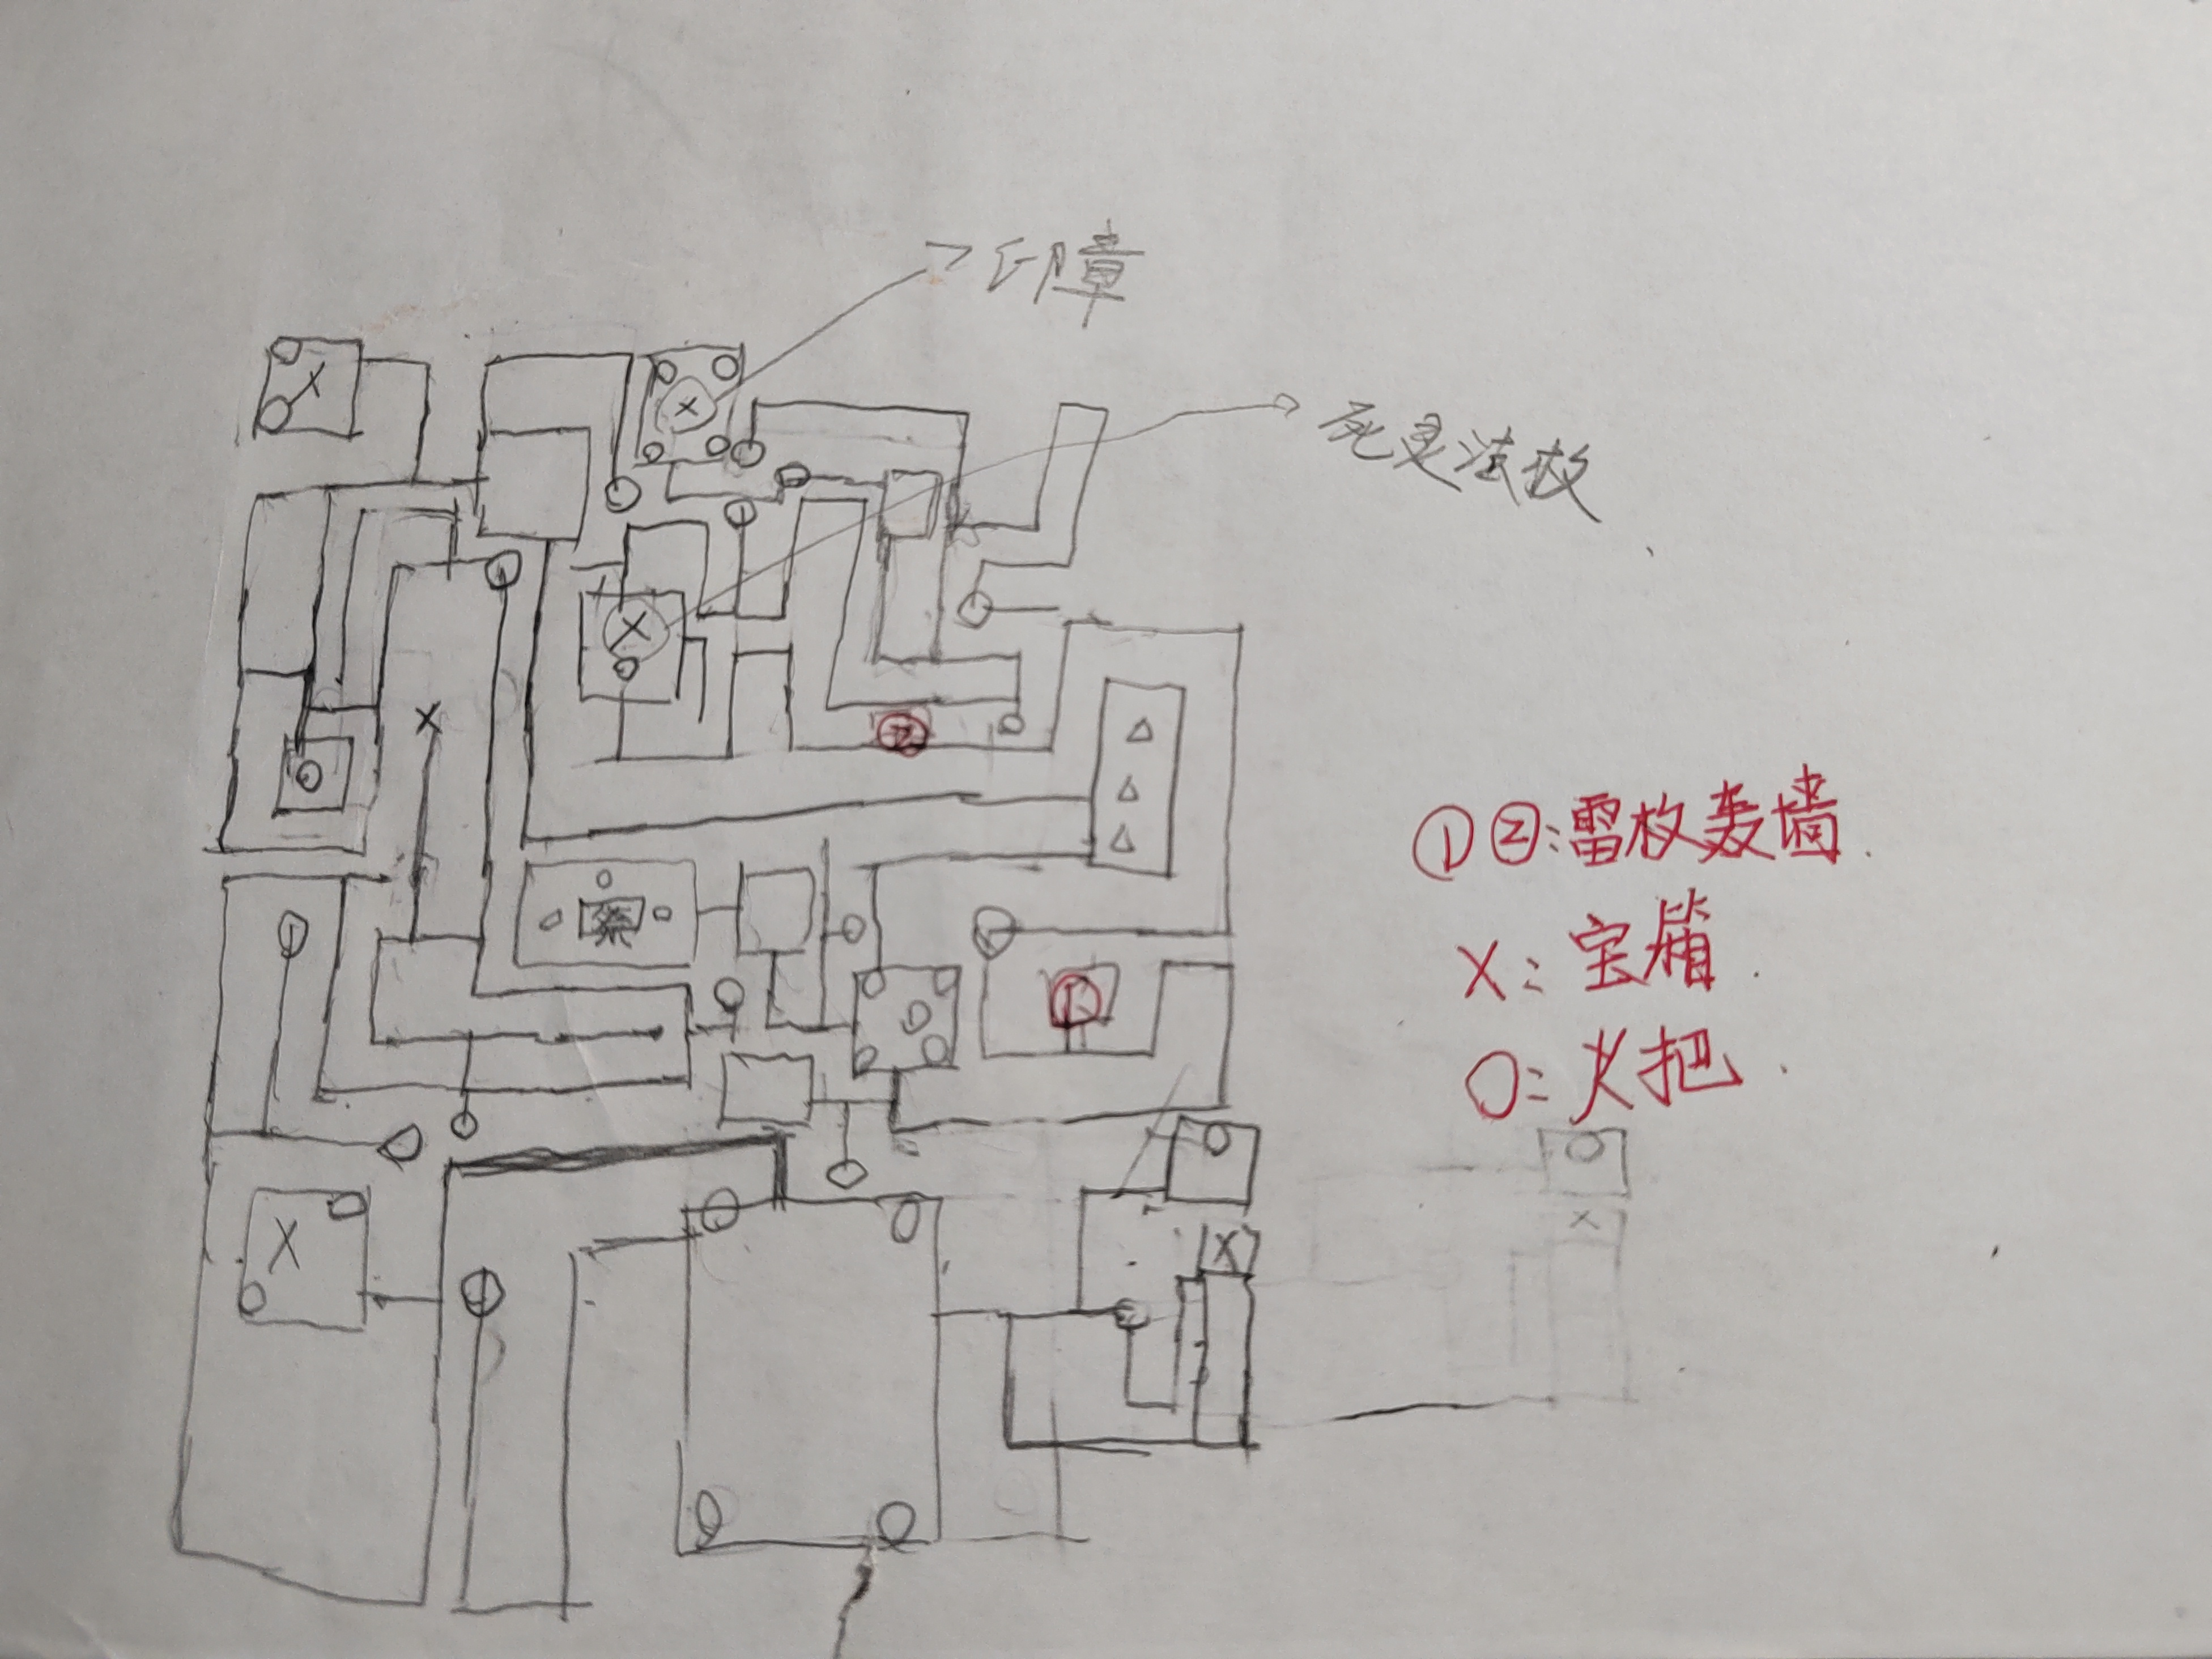 印章
死灵法杖
①②:雷杖轰墙.
X:宝箱.
O:火把.
②
①